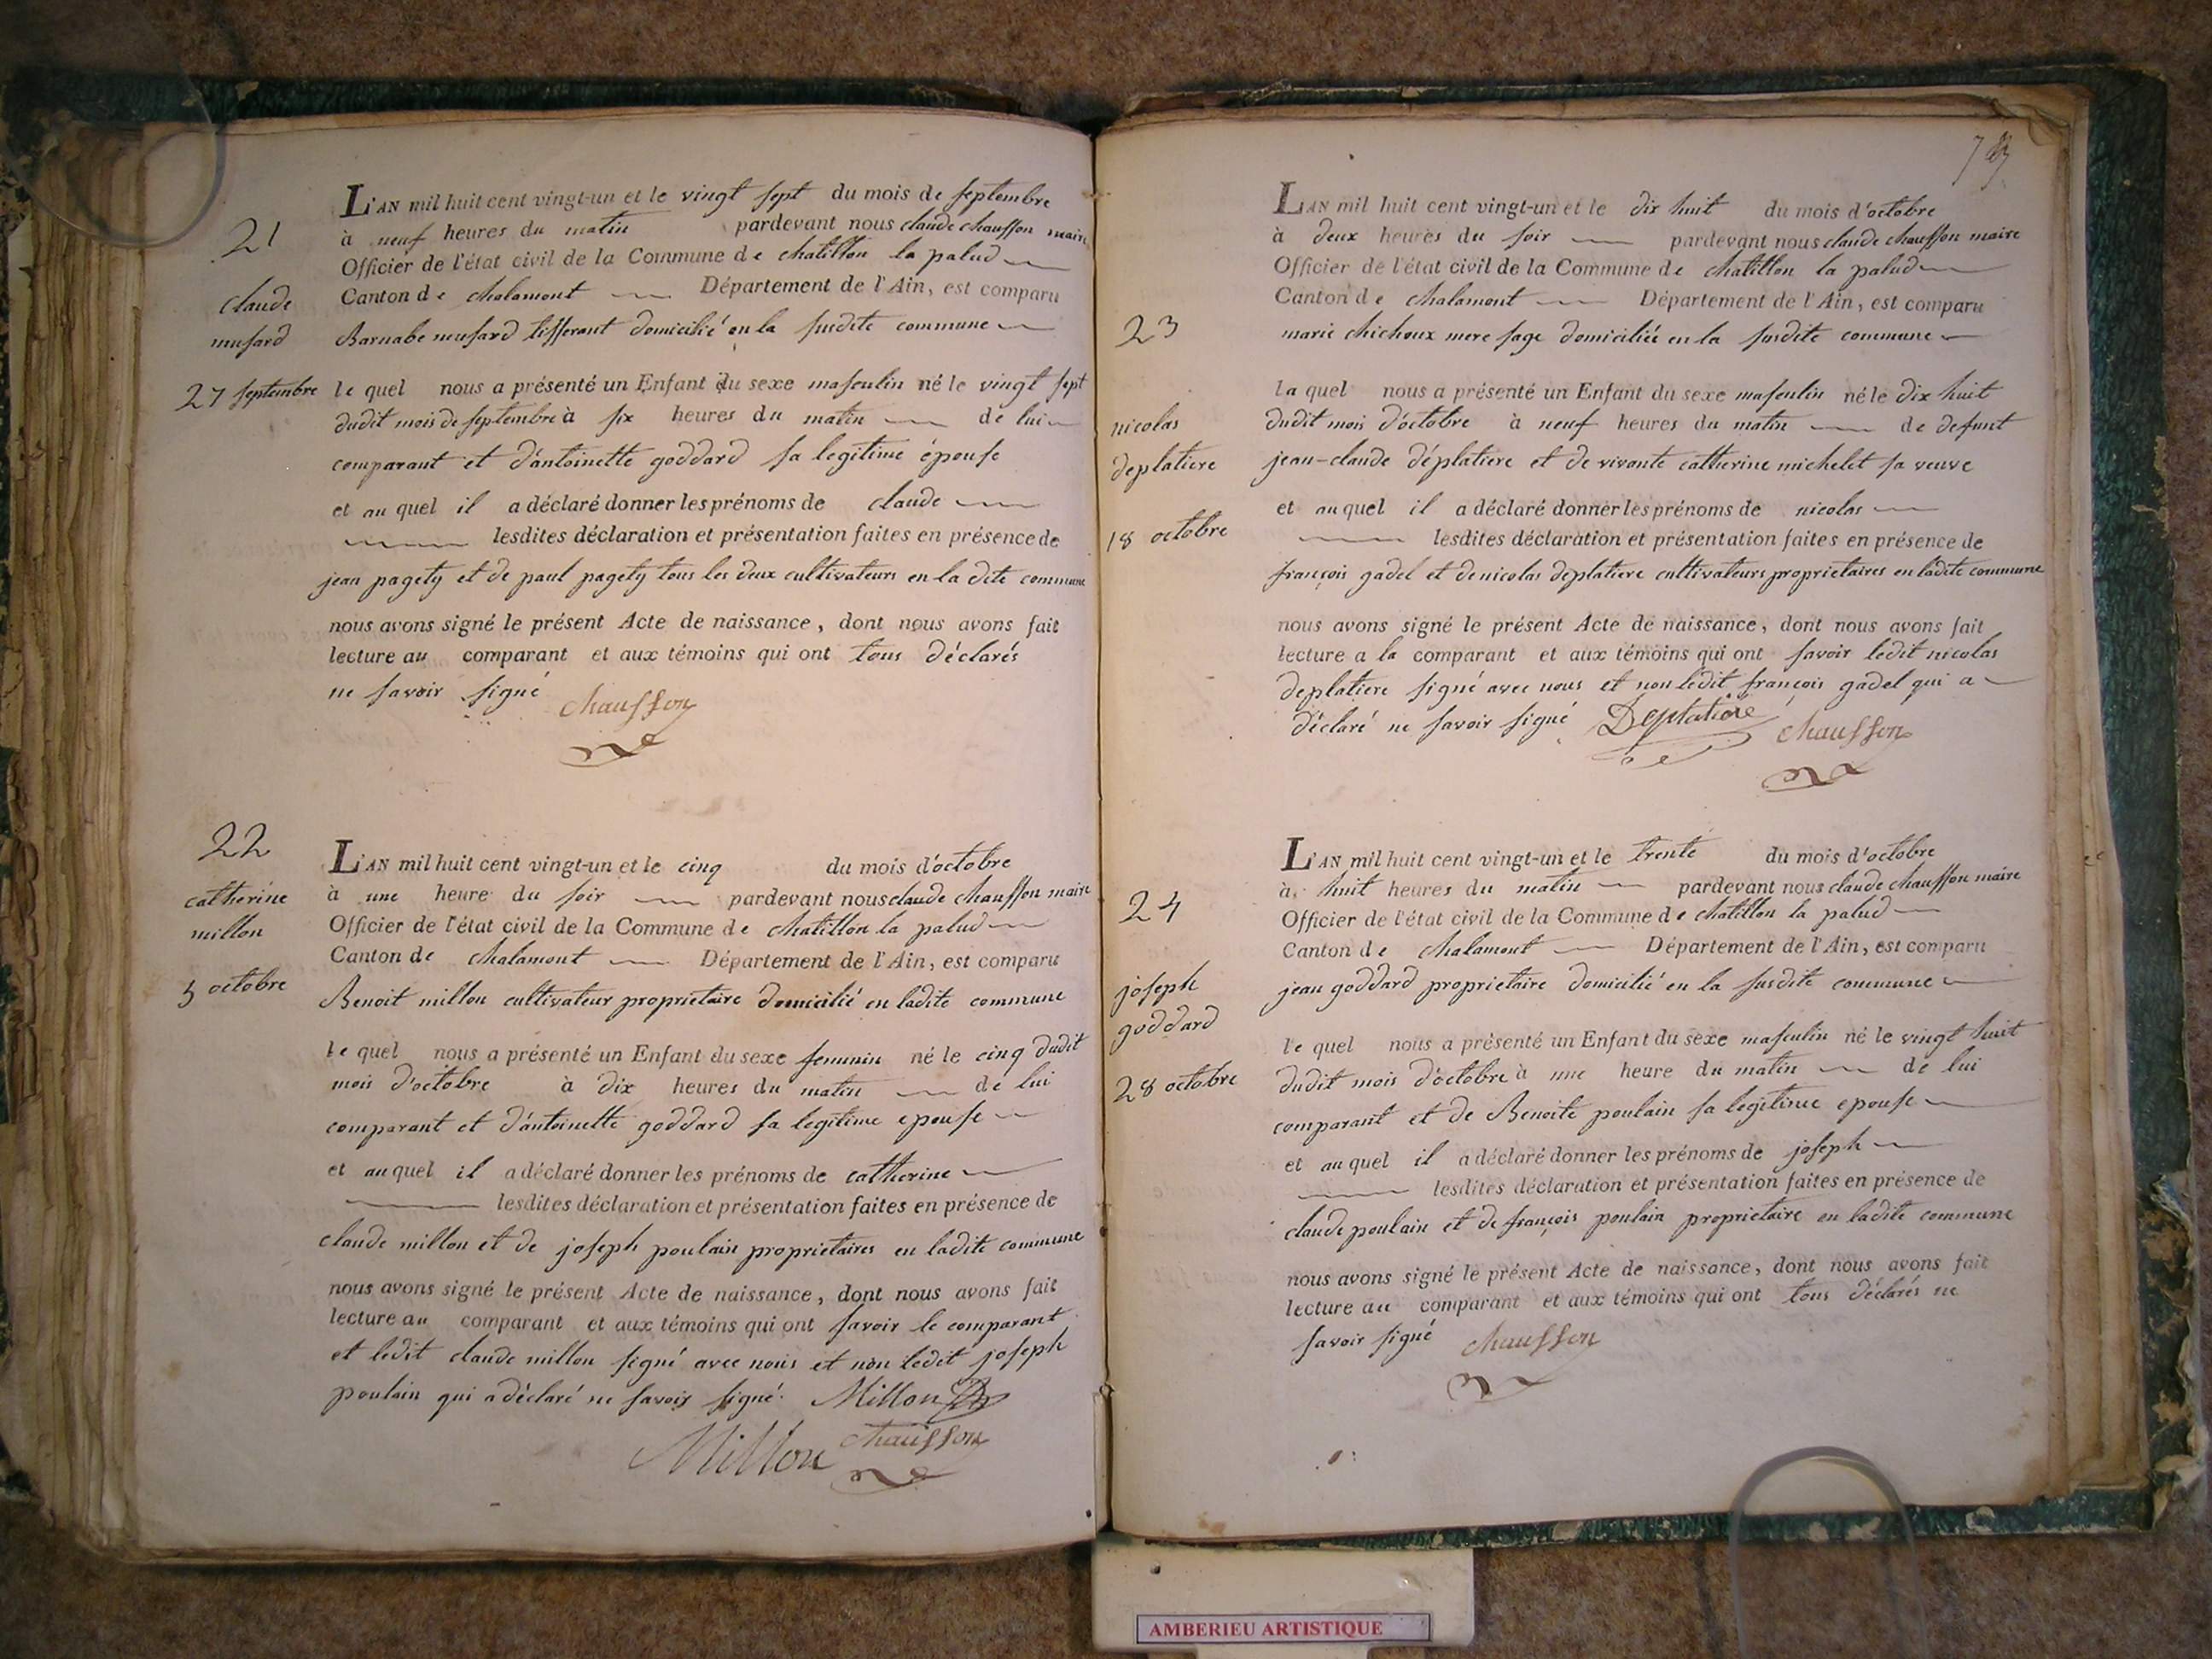 21
claude
musard
27 septembre
L'AN mil huit cent vingt-un et le vingt sept du mois de septembre
à neuf heures du matin pardevant nous claude chausson maire
Officier de l'état civil de la Commune de chatillon la palud
Canton de chalamont Département de l'Ain, est comparu
Barnabe musard tisserant domicilié en la susdite commune
le quel nous a présenté un Enfant du sexe masculin né le vingt sept
dudit mois de septembre à six heures du matin de lui
comparant et d'antoinette goddard sa legitime épouse
et au quel il a déclaré donner les prénoms de claude
lesdites déclaration et présentation faites en présence de
jean pagety et de paul pagety tous les deux cultivateurs en la dite commune
nous avons signé le présent Acte de naissance, dont nous avons fait
lecture au comparant et aux témoins qui ont tous déclarés
ne savoir signé
chausson
22
catherine
millon
5 octobre
L'AN mil huit cent vingt-un et le cinq du mois d'octobre
à une heure du soir pardevant nous claude chausson maire
Officier de l'état civil de la Commune de chatillon la palud
Canton de chalamont Département de l'Ain, est comparu
Benoit millon cultivateur proprietaire domicilié en ladite commune
le quel nous a présenté un Enfant du sexe femunin né le cinq dudit
mois d'octobre à dix heures du matin de lui
comparant et d'antoinette goddard sa legitime epouse
et au quel il a déclaré donner les prénoms de catherine
lesdites déclaration et présentation faites en présence de
claude millon et de joseph poulain proprietaires en ladite commune
nous avons signé le présent Acte de naissance, dont nous avons fait
lecture au comparant et aux témoins qui ont savoir le comparant
et ledit claude millon signé avec nous et non ledit joseph
poulain qui a déclaré ne savoir signé. Millon
Millon chausson
23
nicolas
deplatiere
18 octobre
L'AN mil huit cent vingt-un et le dix huit du mois d'octobre
à deux heures du soir pardevant nous claude chausson maire
Officier de l'état civil de la Commune de chatillon la palud
Canton de chalamont Département de l'Ain, est comparu
marie chichoux mere sage domiciliée en la susdite commune
la quel nous a présenté un Enfant du sexe masculin né le dix huit
dudit mois d'octobre à neuf heures du matin de defunt
jean-claude déplatiere et de vivante catherine michelet sa veuve
et au quel il a déclaré donner les prénoms de nicolas
lesdites déclaration et présentation faites en présence de
françois gadel et de nicolas deplatiere cultivateurs proprietaires en ladite commune
nous avons signé le présent Acte de naissance, dont nous avons fait
lecture a la comparant et aux témoins qui ont savoir ledit nicolas
deplatiere signé avec nous et non ledit françois gadel qui a
déclaré ne savoir signé Deplatiere chausson
24
joseph
goddard
28 octobre
L'AN mil huit cent vingt-un et le trente du mois d'octobre
à huit heures du matin pardevant nous claude chausson maire
Officier de l'état civil de la Commune de chatillon la palud
Canton de chalamont Département de l'Ain, est comparu
jean goddard proprietaire domicilié en la susdite commune
le quel nous a présenté un Enfant du sexe masculin né le vingt huit
dudit mois d'octobre à une heure du matin de lui
comparant et de Benoite poulain sa legitime epouse
et au quel il a déclaré donner les prénoms de joseph
lesdites déclaration et présentation faites en présence de
claude poulain et de françois poulain proprietaire en ladite commune
nous avons signé le présent Acte de naissance, dont nous avons fait
lecture au comparant et aux témoins qui ont tous déclarés ne
savoir signé chausson
AMBERIEU ARTISTIQUE